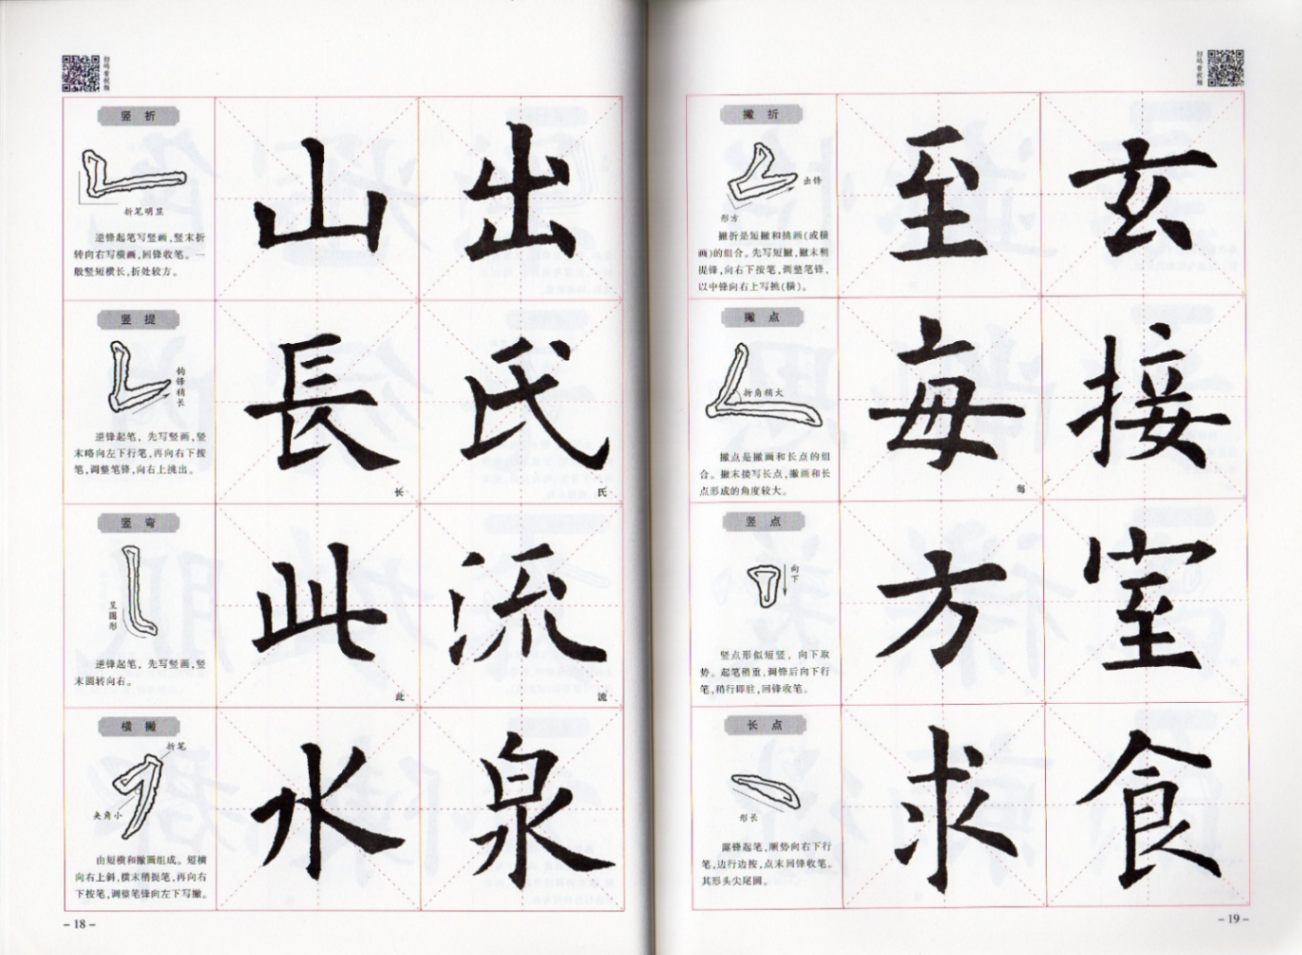 扫码看视频
竖折
折笔明显
逆锋起笔写竖画,竖末折
转向右写横画,回锋收笔。一
般竖短横长,折处较方。
山 出
竖提
钩锋稍长
逆锋起笔，先写竖画,竖
末略向左下行笔,再向右下按
笔,调整笔锋,向右上挑出。
長 氏
长 氏
竖弯
呈圆形
逆锋起笔，先写竖画,竖
末圆转向右。
此 流
此 流
横撇
折笔
夹角小
由短横和撇画组成。短横
向右上斜,横末稍提笔,再向右
下按笔,调整笔锋向左下写撇。
水 泉
- 18 -
扫码看视频
撇折
出锋
形方
撇折是短撇和挑画(或横
画)的组合。先写短撇,撇末稍
提锋,向右下按笔,调整笔锋,
以中锋向右上写挑(横)。
至 玄
撇点
折角稍大
撇点是撇画和长点的组
合。撇末接写长点,撇画和长
点形成的角度较大。
每 接
每
竖点
向下
竖点形似短竖，向下取
势。起笔稍重,调锋后向下行
笔,稍行即驻,回锋收笔。
方 室
长点
形长
露锋起笔,顺势向右下行
笔,边行边按,点末回锋收笔。
其形头尖尾圆。
求 食
- 19 -